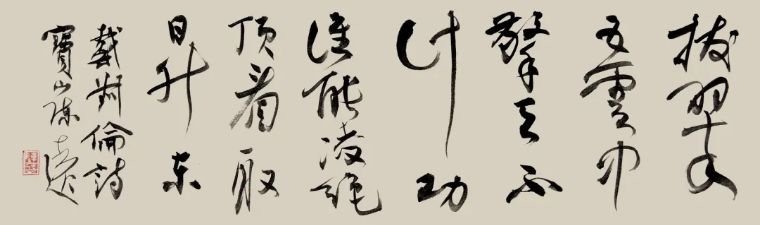 拔翠
五雲中
擎天不
計功
誰能凌絶
頂看取
日升東
戴叔倫詩
寶山陳